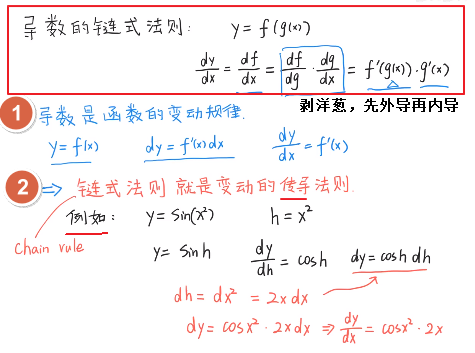 导数的链式法则: y = f(g(x))
dy/dx = df/dx = df/dg · dg/dx = f'(g(x))·g'(x)
剥洋葱，先外导再内导
1 导数是函数的变动规律.
y = f(x) dy = f'(x)dx dy/dx = f'(x)
2 => 链式法则 就是变动的传导法则.
例如: y = sin(x²) h = x²
Chain rule
y = sinh dy/dh = cosh dy = cosh dh
dh = dx² = 2xdx
dy = cosx²·2xdx ⇒ dy/dx = cosx²·2x